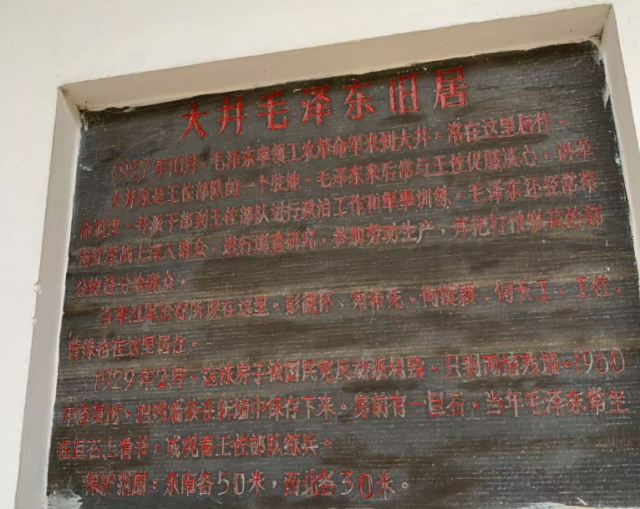 大井毛泽东旧居
1927年10月，毛泽东率领工农革命军来到大井，常在这里居住。
大井原是王佐部队的一个驻地。毛泽东来后常与王佐促膝谈心，讲革
命道理，并派干部到王佐部队进行政治工作和军事训练。毛泽东还经常带
领红军战士深入群众，进行调查研究，参加劳动生产，并把打
分给群众。
当年红军医务所设在这里。彭德怀、何长工、王佐、
曾在这里居住。
1929年2月，这栋房子被国民党反动派烧毁，只剩下残墙。1960
年修复时，把残墙嵌在新墙中保存下来。房前有一巨石，当年毛泽东常坐
在巨石上看书，或观看王佐部队练兵。
保护范围：东南各50米，西北各30米。